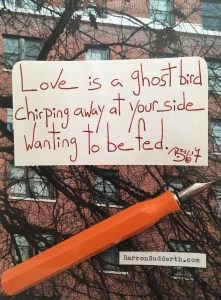 Love is a ghost bird
chirping away at your side
wanting to be fed.
BarronSudderth.com